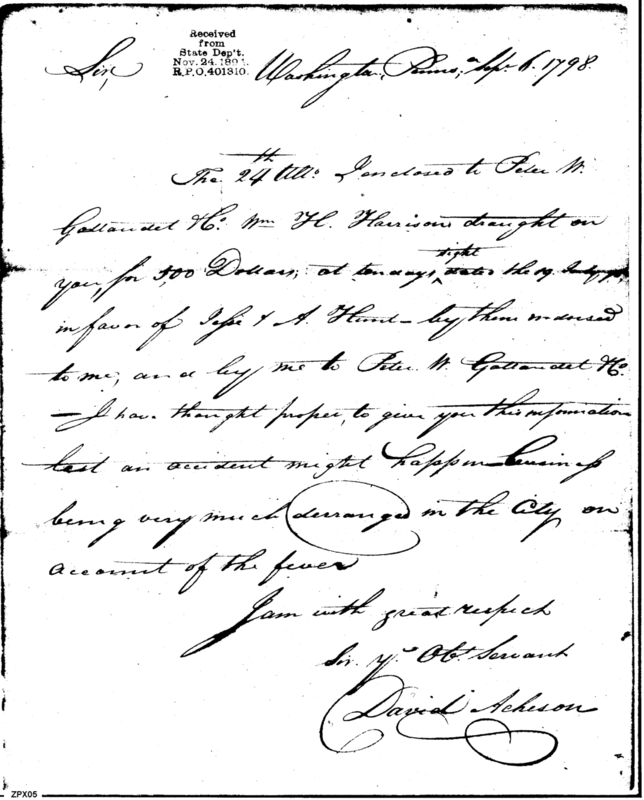 Received
from
State Dep't.
Nov. 24. 1891.
R.P.O. 401310.
Sir, Washington, Penns.a Sepr. 6. 1798.
The 24th Ulto. I enclosed to Peter W.
Gallaudet & Co. Wm H. Harrisons draught on
you, for 500 Dollars, at ten days, sight dated the 19. July
in favor of Jesse & A. Hunt - by them indorsed
to me, and by me to Peter W. Gallaudet & Co.
- I have thought proper, to give you this information
lest an accident might happen business
being very much derranged in the City on
account of the fever
I am with great respect
Sir. yr. Obt. Servant
David Acheson
ZPX05